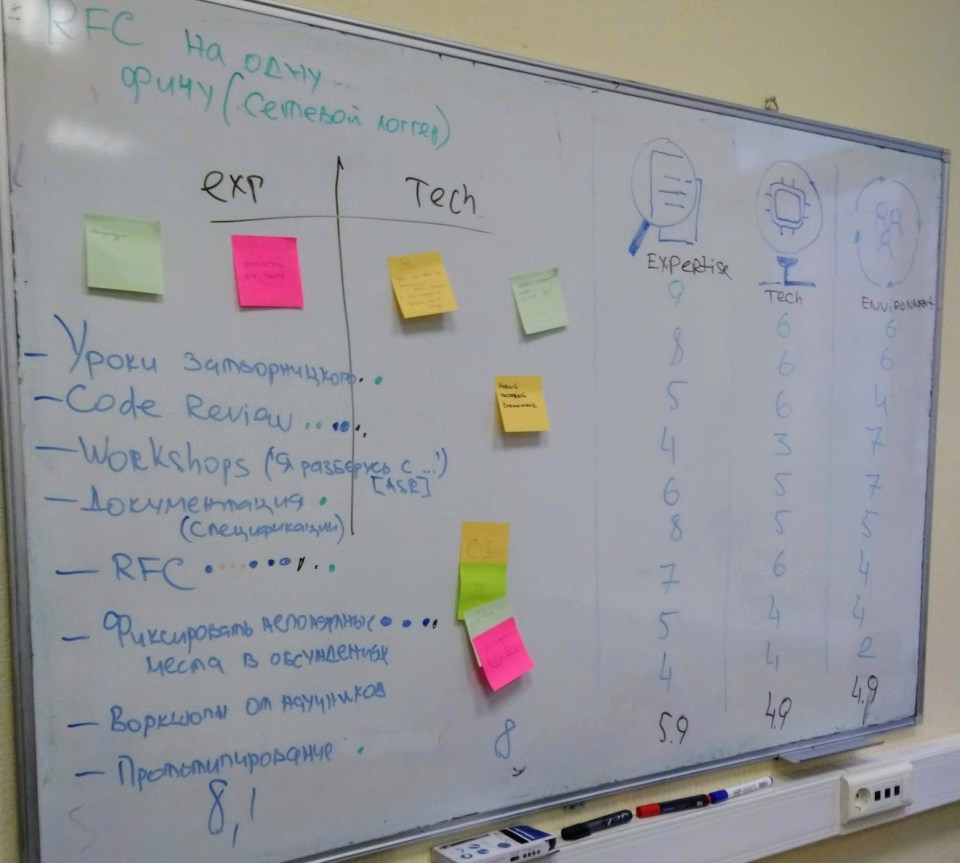 RFC на одну...
фичу (сетевой логгер)
exp
Tech
CI
- Уроки затворницкого.
- Code Review
- Workshops ("Я разберусь с ...")
[ASR]
- Документация
(спецификации)
- RFC
- Фиксировать непонятные
места в обсуждениях
- Воркшопы от научников
- Прототипирование
8,1
8
Expertise
Tech
Environment
9 6 6
8 6 6
5 6 4
4 3 7
6 5 7
8 5 5
7 6 4
5 4 4
4 4 2
5.9 4.9 4.9